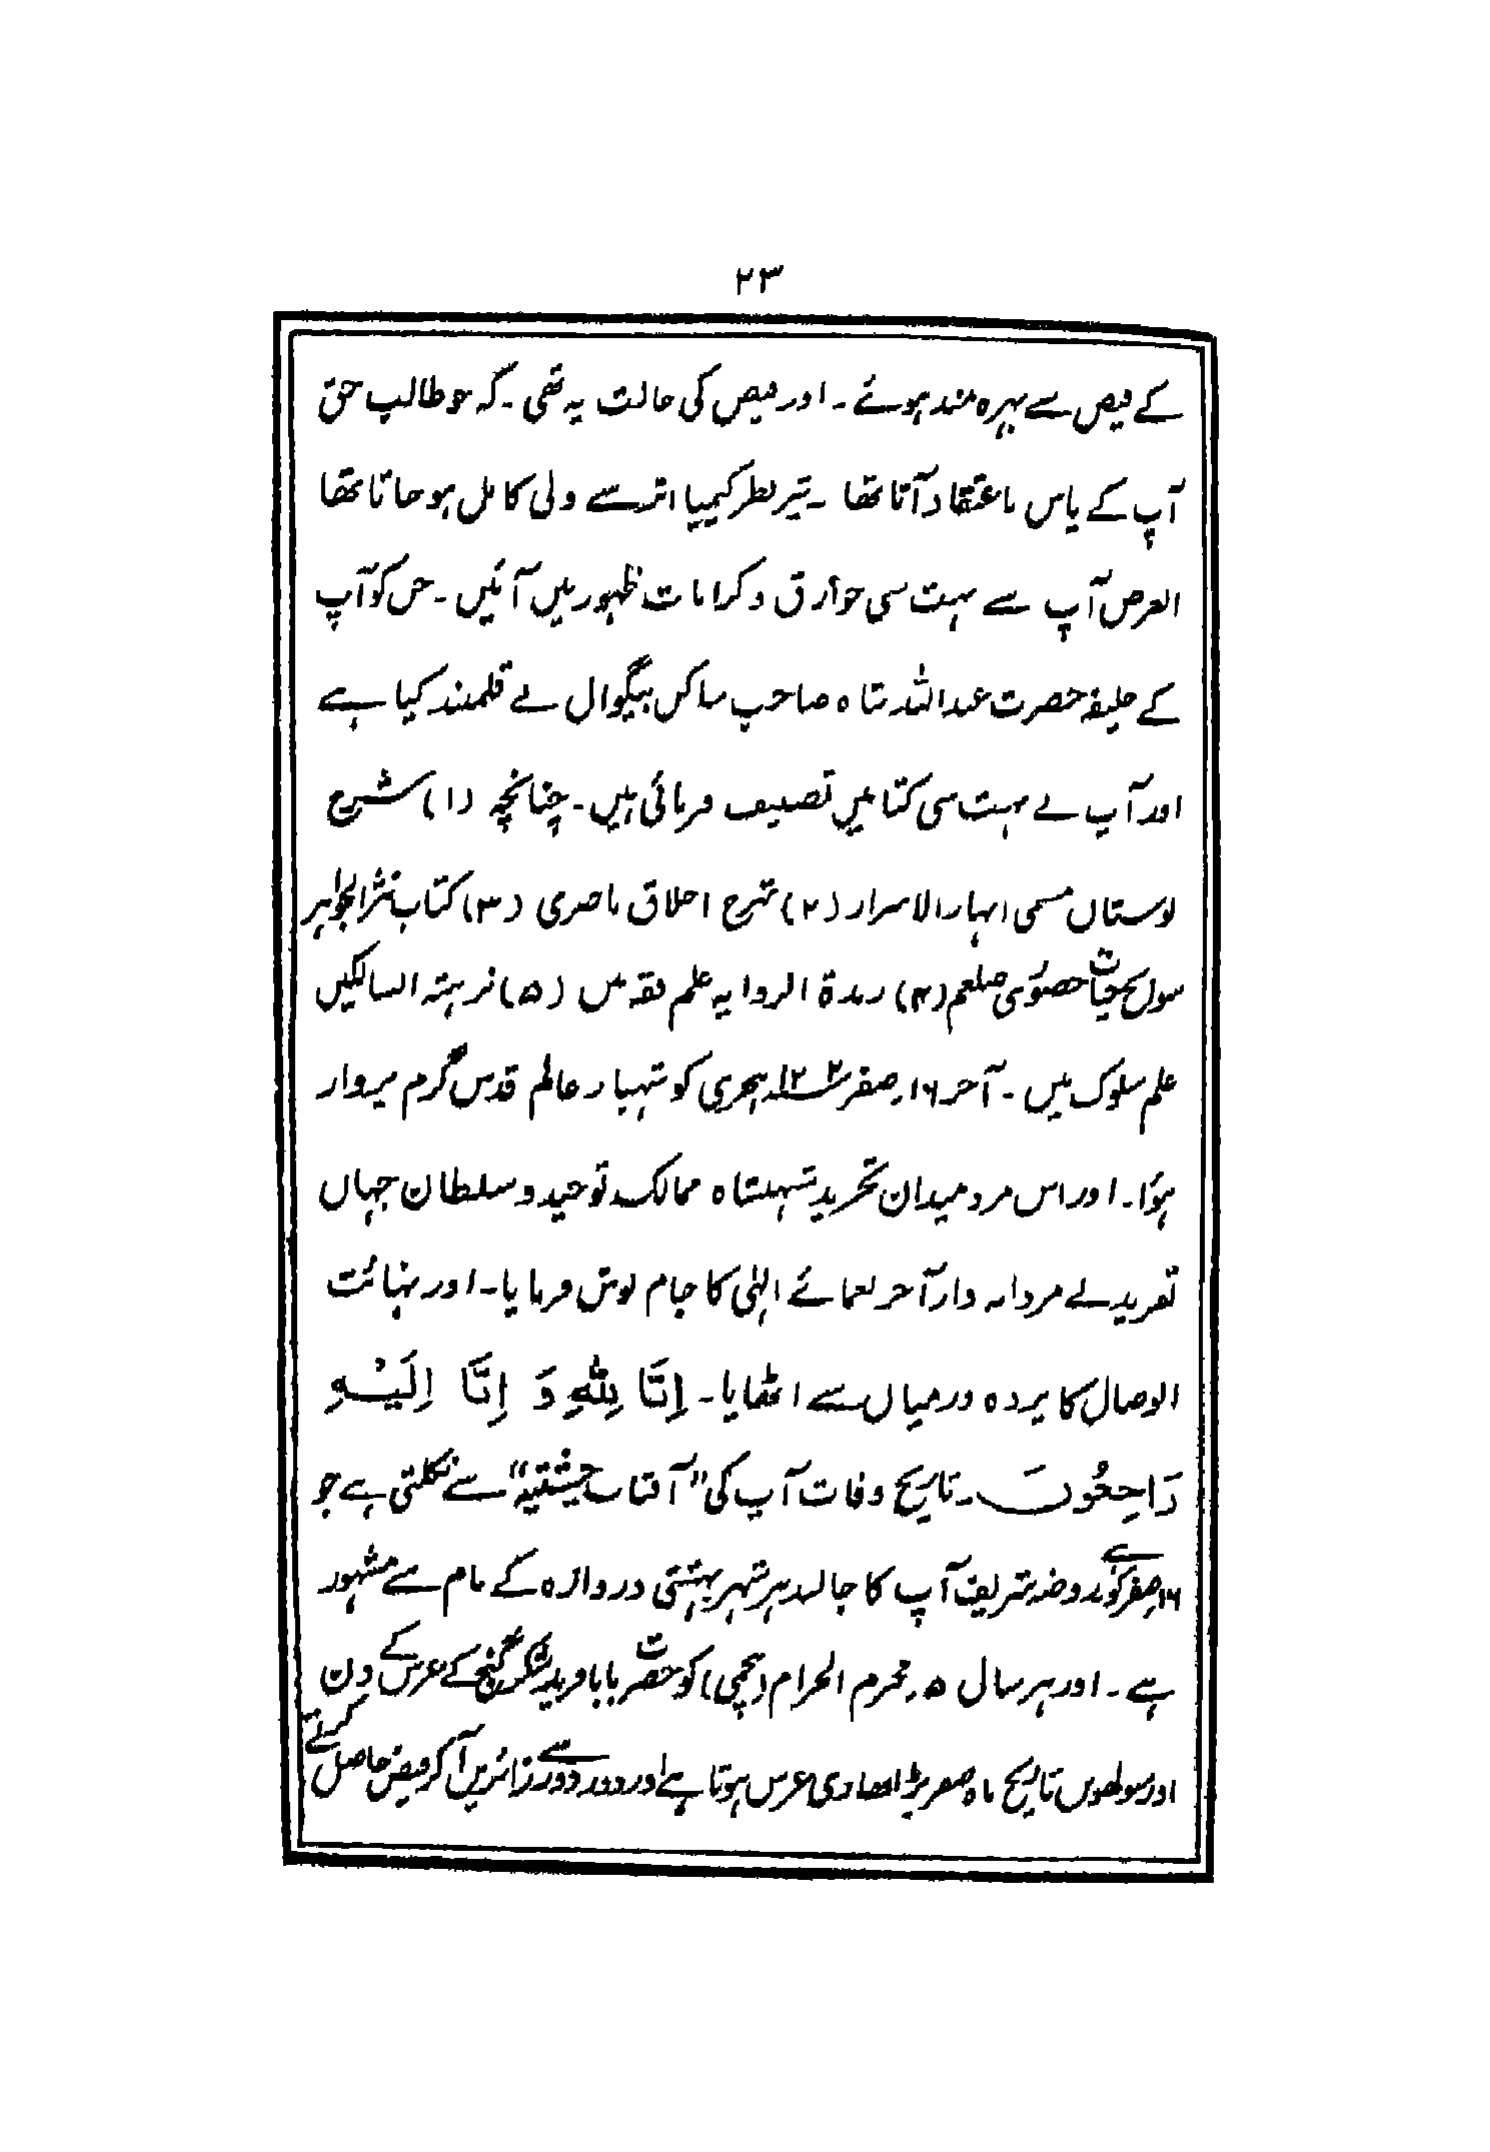 ۲۳
کے فیض سے بہرہ مند ہوئے ۔ اور فیض کی حالت یہ تھی ۔ کہ جو طالب حق
آپ کے پاس باعتقاد آتا تھا ۔ تیر نظر کیمیا اثر سے ولی کامل ہو جاتا تھا
الغرض آپ سے بہت سی خوارق و کرامات ظہور میں آئیں ۔ جس کو آپ
کے خلیفہ حضرت عبداللہ شاہ صاحب ساکن بیگوال نے قلمبند کیا ہے
اور آپ نے بہت سی کتابیں تصنیف فرمائی ہیں ۔ چنانچہ (۱) شرح
بوستاں مسمی انہار الاسرار (۲) شرح اخلاق ناصری (۳) کتاب نثر الجواہر
سوانح حیات حضور نبی صلعم (۴) زبدۃ الروایہ علم فقہ میں (۵) نزہتہ السالکین
علم سلوک میں ۔ آخر ۱۶ صفر ۱۲۰۲ ہجری کو شہباز عالم قدس گرم پرواز
ہؤا ۔ اور اس مرد میدان تجرید شہنشاہ ممالک توحید و سلطان جہاں
تفرید نے مردانہ وار آخر لعمائے الہٰی کا جام نوش فرمایا ۔ اور نہائت
الوصال کا پردہ درمیاں سے اٹھایا ۔ اِنَّا لِلّٰهِ وَ اِنَّا اِلَیْهِ
رَاجِعُونَ ۔ تاریخ وفات آپ کی "آفتاب چشتیہ" سے نکلتی ہے جو
۱۶ صفر کو ہے روضہ شریف آپ کا جالندہر شہر بہشتی دروازہ کے نام سے مشہور
ہے ۔ اور ہر سال ۵ محرم الحرام (پنجمی) کو حضرت بابا فرید شکر گنج کے عرس کے دن
اور سولھویں تاریخ ماہ صفر بڑا بھاری عرس ہوتا ہے اور دور دور سے زائرین آ کر فیض حاصل کرتے